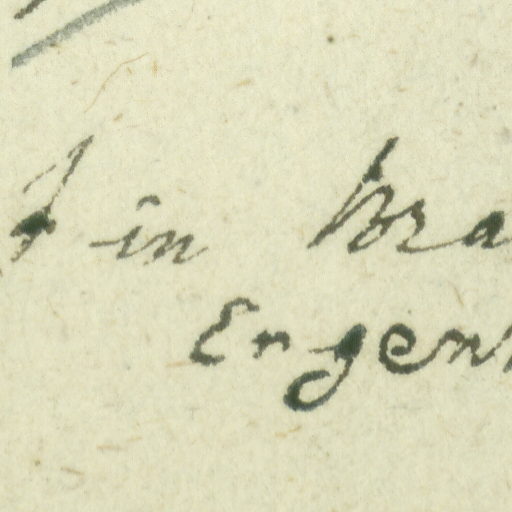 in Bra
Engen